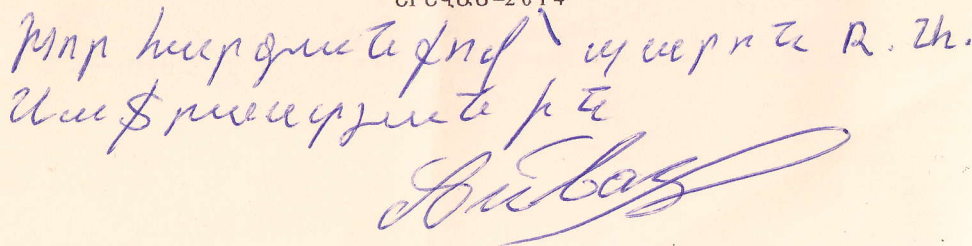 ԵՐԵՎԱՆ-2014
Խոր հարգանքով՝ պարոն Ռ. Տի.
Սաֆրաստյանին